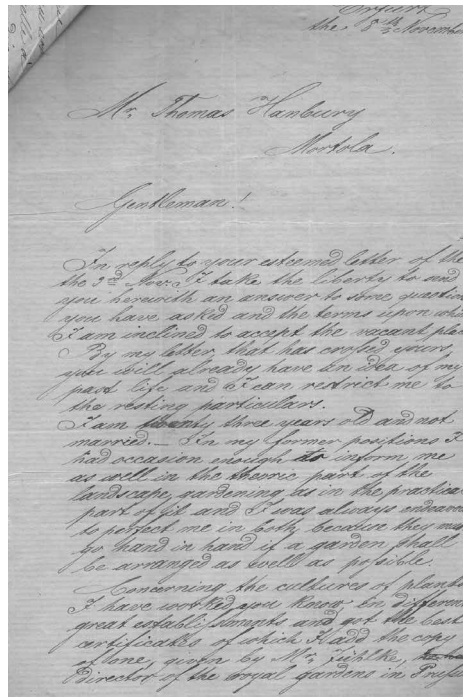 Erfurt
the 8th November
Mr. Thomas Hanbury
Mortola.
Gentleman!
In reply to your esteemed letter of the
the 3rd Nov. I take the liberty to send
you herewith an answer to some question
you have asked and the terms upon whi
I am inclined to accept the vacant plac
By my letter, that has crossed yours,
you will already have an idea of my
past life and I can restrict me to
the resting particulars.
I am twenty three years old and not
married. – In my former positions I
had occasion enough to inform me
as well in the theoric part of the
landscape gardening, as in the practica
part of it and I was always endeavou
to perfect me in both, because they mus
go hand in hand if a garden shall
be arranged as well as possible.
Concerning the cultures of plants
I have worked, you know, in differen
great establishments and got the best
certificates of which I add the copy
of one, given by Mr. Jühlke,
director of the royal gardens in Pruss